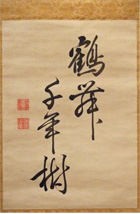 鶴舞
千年樹